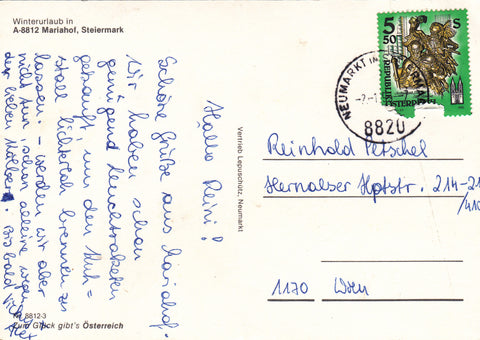 Winterurlaub in
A-8812 Mariahof, Steiermark
Hallo Reini!
Schöne Grüße aus Mariahof.
Wir haben schon
genügend Leuchtraketen
gekauft um den Kuh=
stall lichterloh brennen zu
lassen. – werden wir aber
nicht tun schon alleine wegen
der lieben
Bis bald
Nr. 8812-3
Zum Glück gibt's Österreich
Vertrieb Lepuschütz, Neumarkt
5 50
S
REPUBLIK ÖSTERREICH
NEUMARKT IN
8820
Reinhold Petschel
Hernalser Hptstr. 214-21
/410
1170 Wien